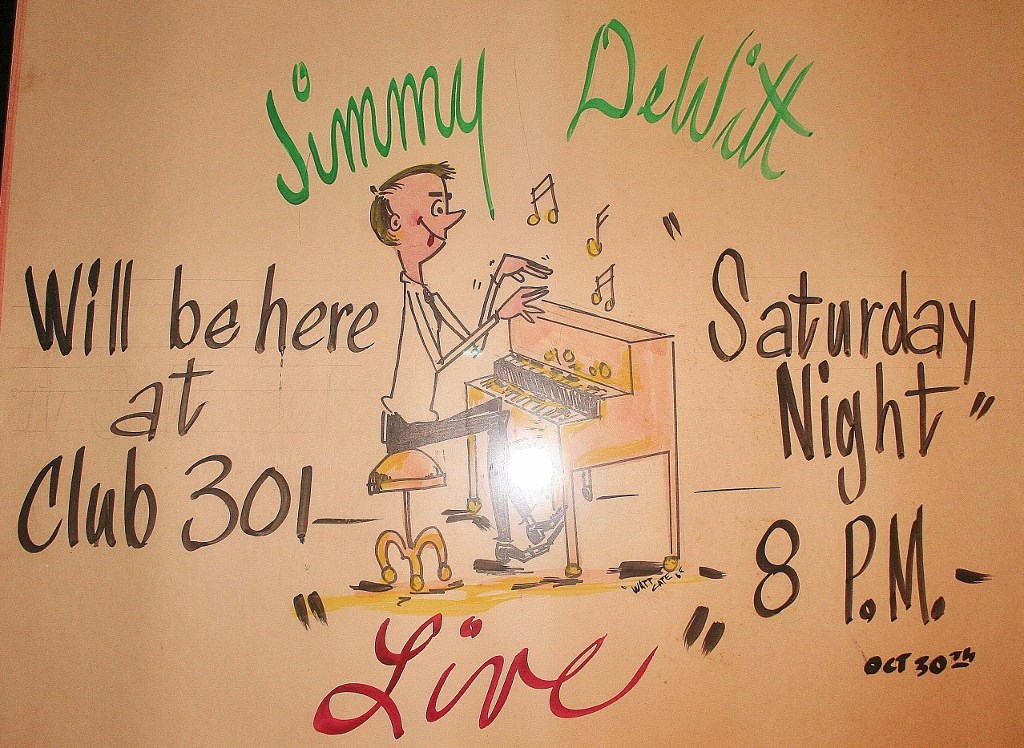 Jimmy DeWitt
Will be here
at
Club 301—
"Saturday
Night"
8 P.M.-
OCT 30TH
"Live"
CATE 65